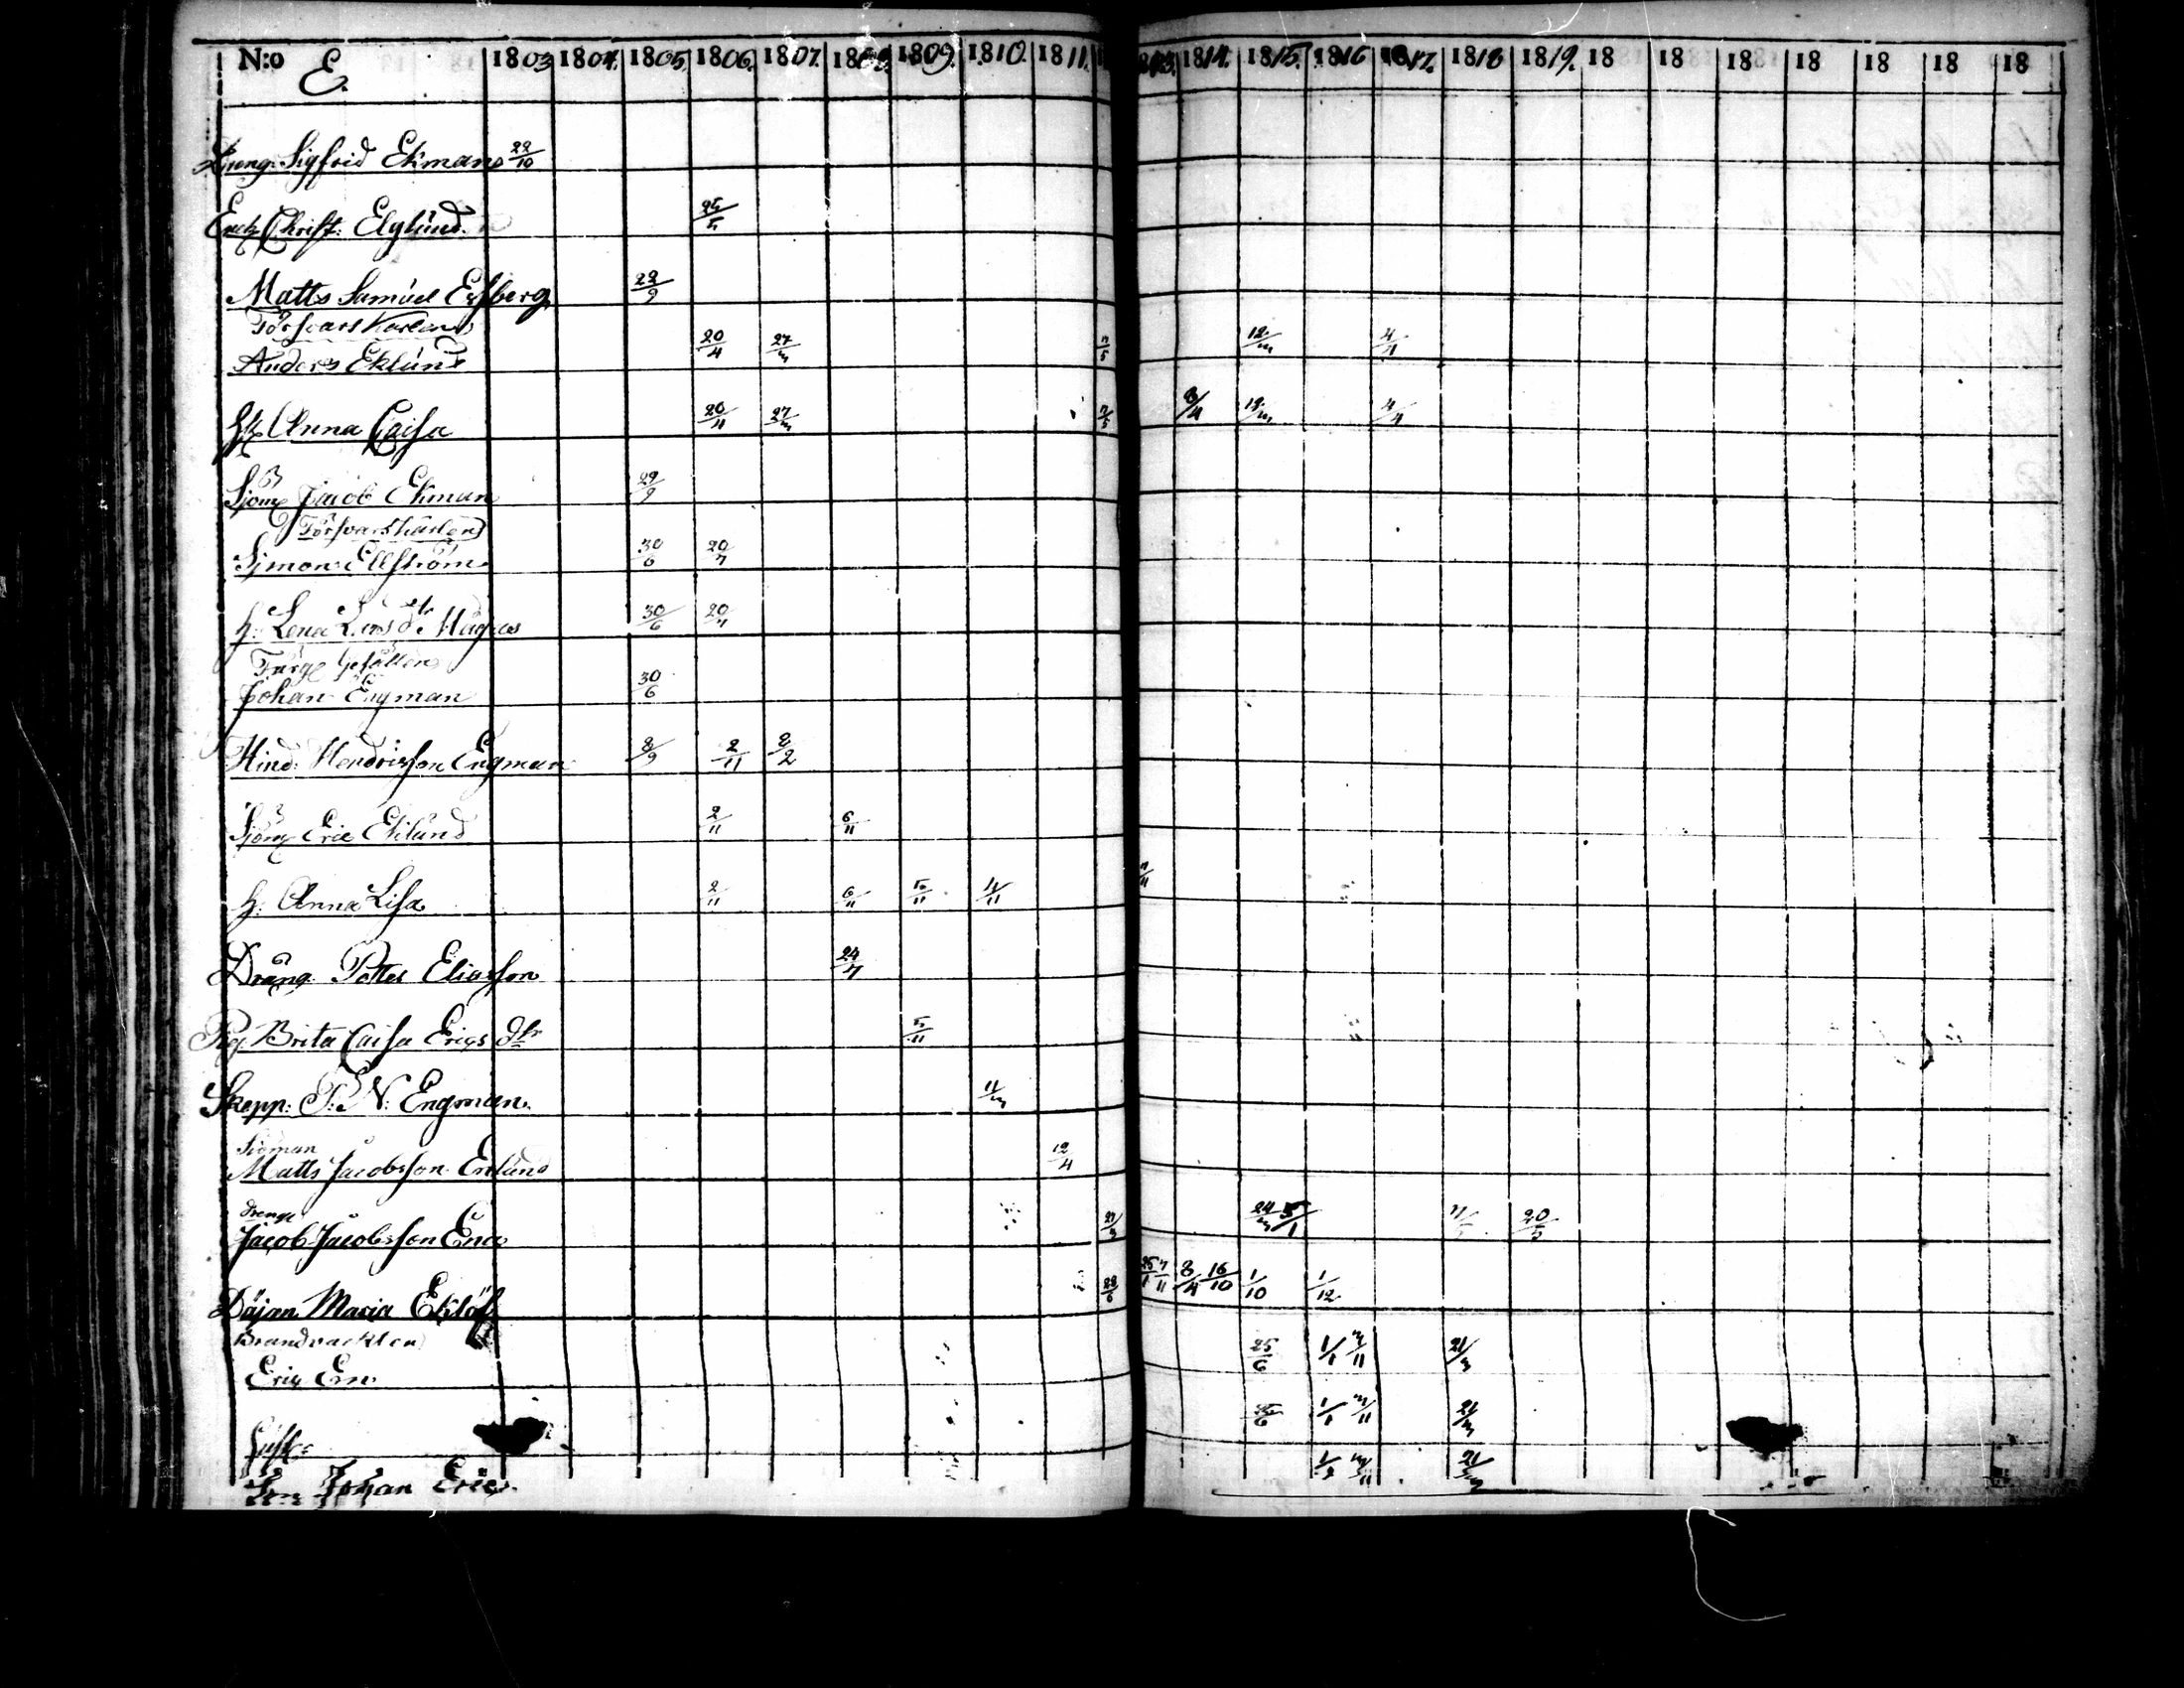 N:o E. 1803 1804. 1805. 1806. 1807. 1808. 1809. 1810. 1811. 1813. 1814. 1815. 1816 1817. 1818 1819. 18 18 18 18 18 18 18
Dreng. Sigfrid Ekman 22/10
Christ: Elglund. 25/5
Matts Samuel 22/9
Försvars Karlen
Anders Eklund 20/4 27/3 7/5 12/3 4/4
Anna Caisa 20/4 27/3 7/5 3/4 12/3 4/4
Sjöm Jacob Ekman 29/9
Försvarskarlen
Simon Ellström 30/6 20/7
h: Lena 30/6 20/7
Färg Gesällen
Johan Engman 30/6
Hind: Hendrisson Engman 8/9 2/11 8/2
Sjöm Eric Eklund 2/11 6/11
h: Anna Lisa 2/11 6/11 5/11 4/11 7/11
Dräng. Petter Eliasson 24/7
Pig. Brita Caisa Erigs dtr 5/11
Skepp: N: Engman. 11/3
Sjöman
Matts Jacobsson 12/4
drenge
Jacob Jacobsson 21/3 24/3 5/1 20/5
Däjan Maria Eklöf 28/6 25/1 7/11 8/4 16/10 1/10 1/12
Brandvackten
Eriq 25/6 1/1 3/11 21/3
25/6 1/1 3/11 21/3
Son Johan Eric 21/3